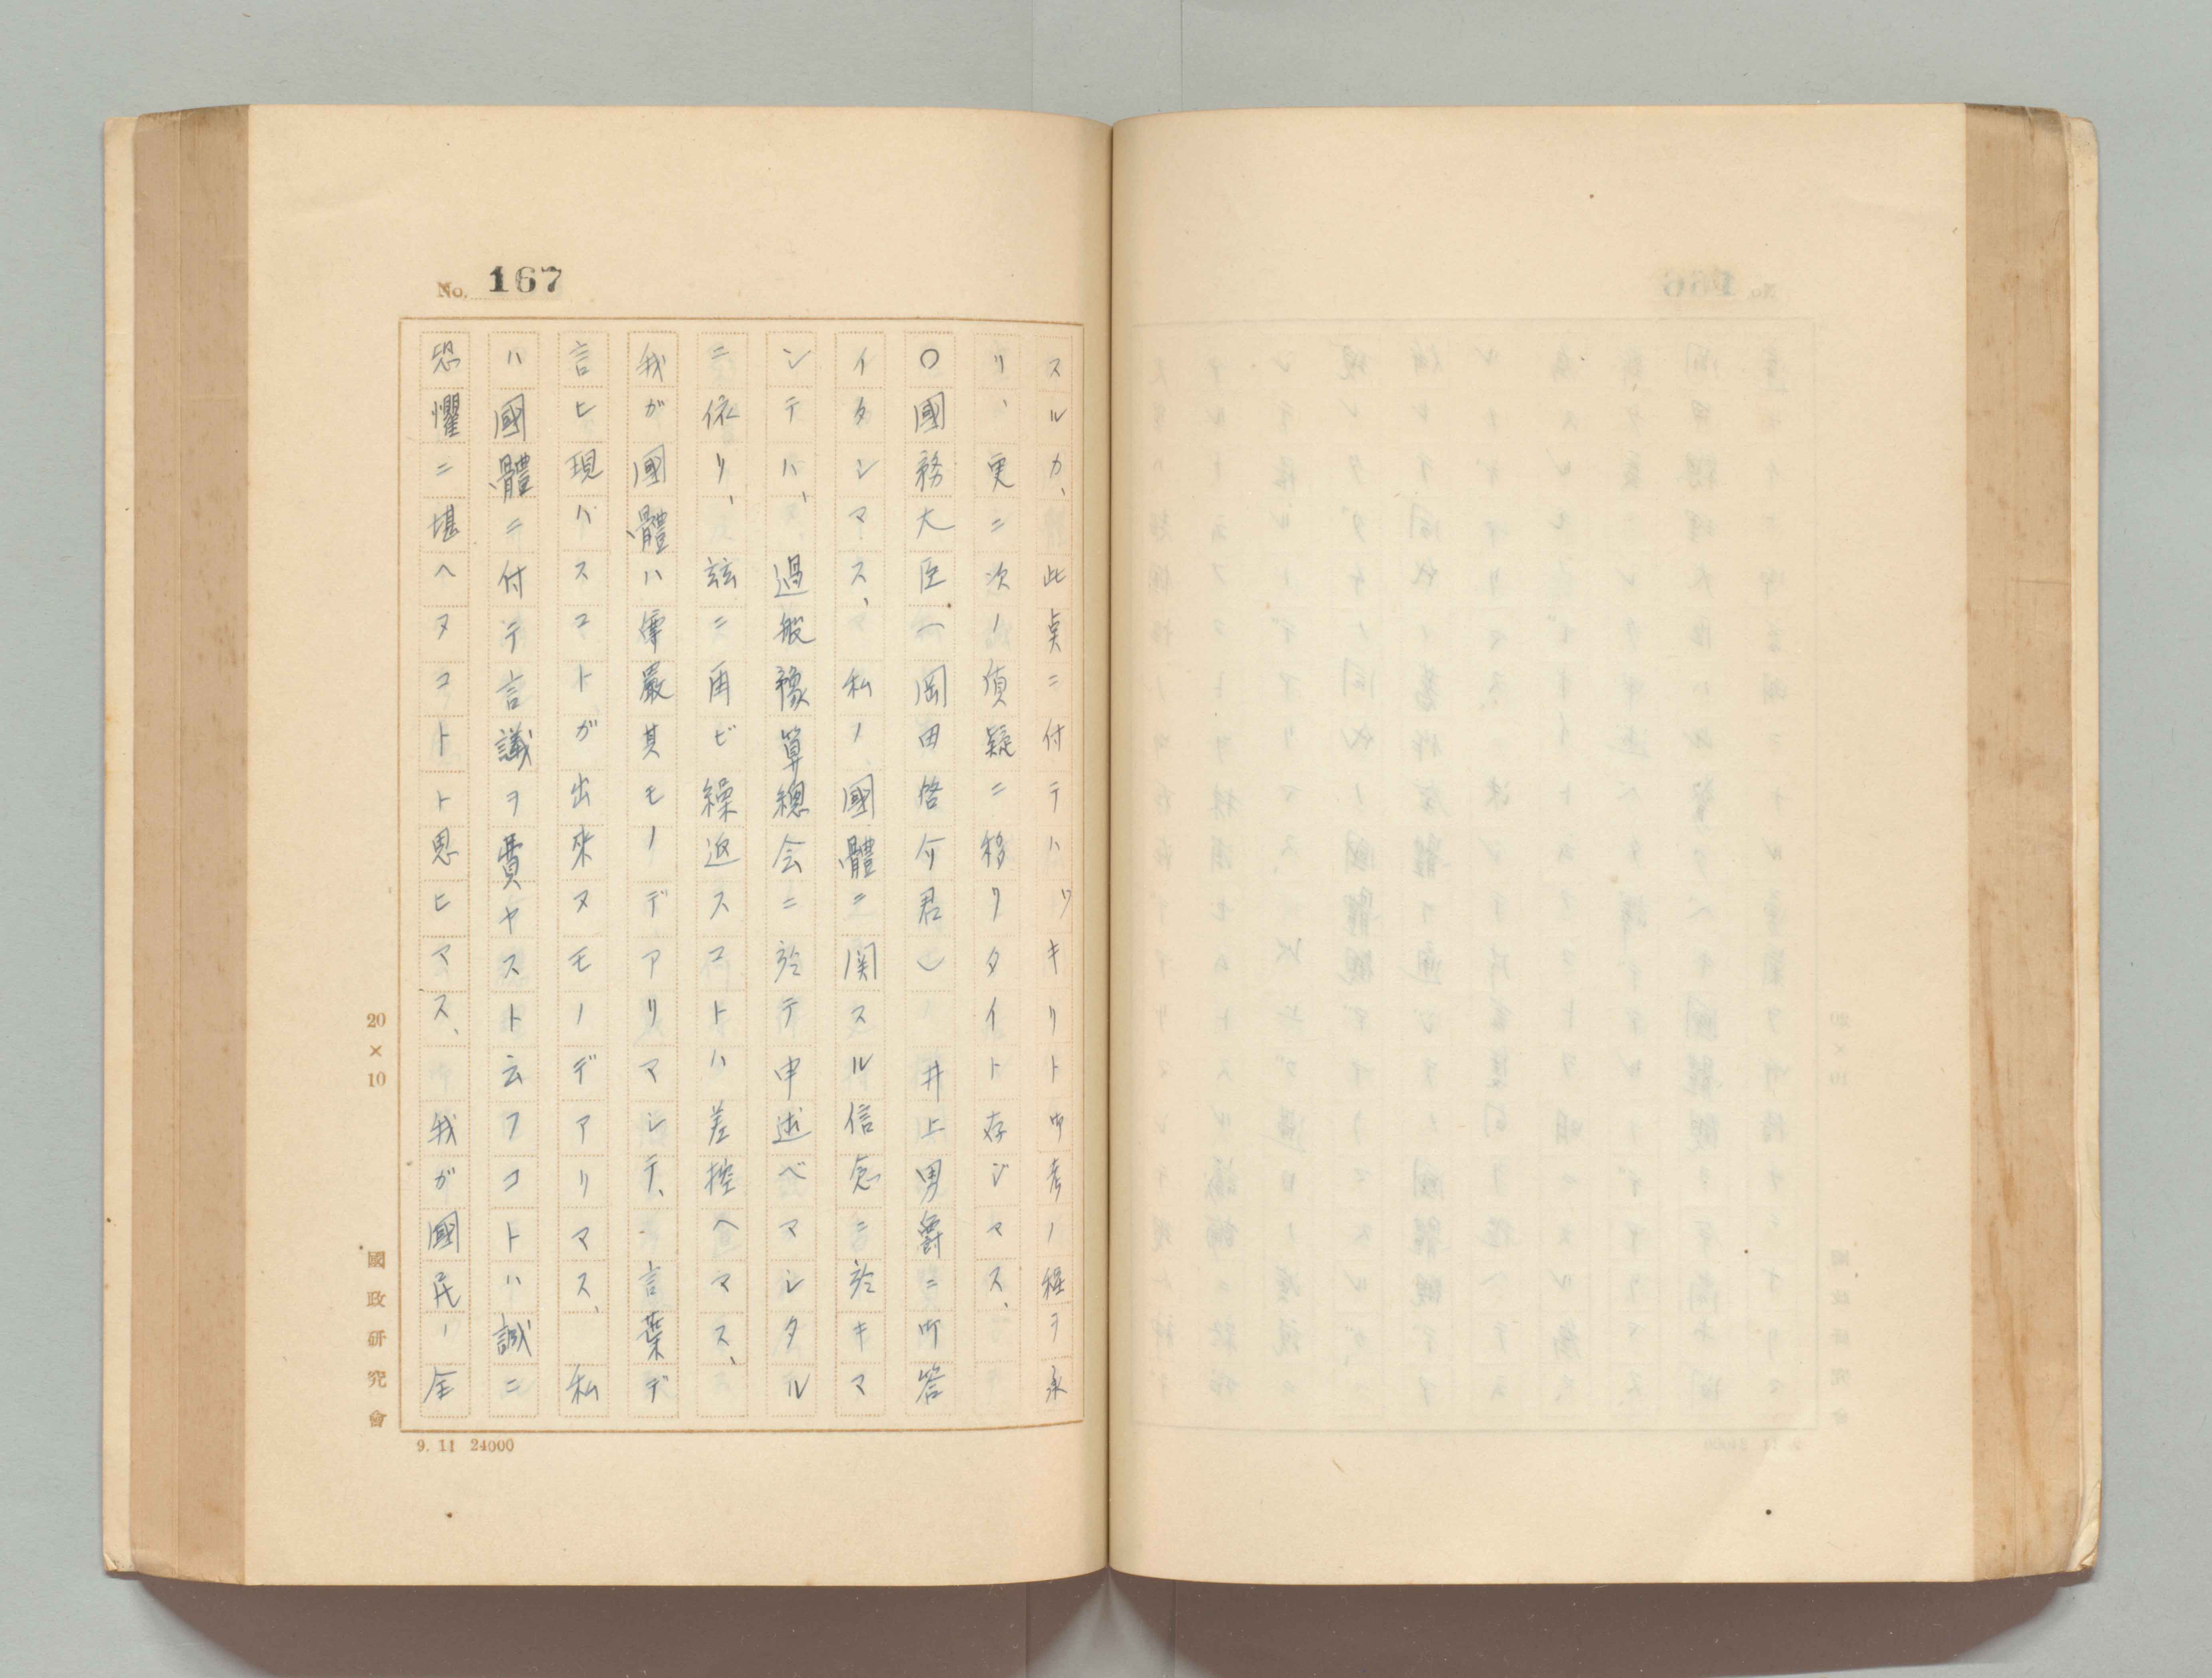 No. 167
スルカ、此点ニ付テハツキリト御考ノ程ヲ承
リ、更ニ次ノ質疑ニ移リタイト存ジマス、
○國務大臣(岡田啓介君) 井上男爵ニ御答
イタシマス、私ノ國體ニ関スル信念ニ於キマ
シテハ、過般豫算總会ニ於テ申述ベマシタル
ニ依リ、茲ニ再ビ繰返スコトハ差控ヘマス、
我ガ國體ハ尊嚴其モノデアリマシテ、言葉デ
言ヒ現ハスコトガ出來ヌモノデアリマス、私
ハ國體ニ付テ言議ヲ費ヤスト云フコトハ誠ニ
恐懼ニ堪ヘヌコトト思ヒマス、我ガ國民ノ全
20×10
國政研究會
9. 11 24000